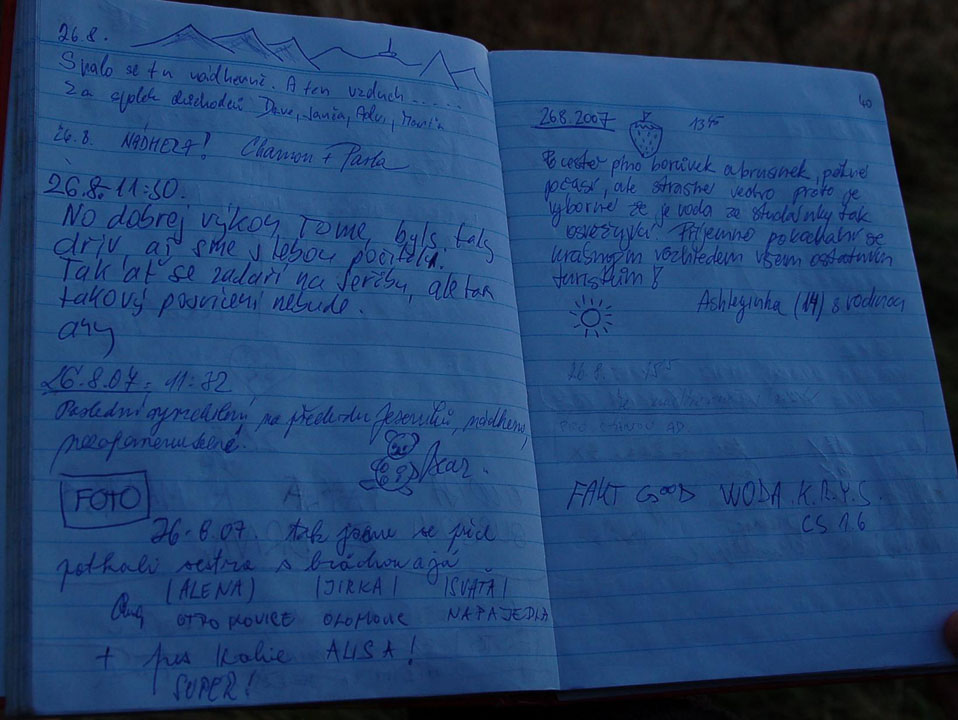 26.8.
Spalo se tu nádherně. A ten vzduch.....
Za spolek důchodců Dave, Janča,
26.8. NÁDHERA! Charron + Pavla
26.8. 11:30.
No dobrej výkon Tome, byls tady
dřív až sme s tebou počítaly.
Tak ať se zadaří na Šeráku, ale tak
takový posvícení nebude.
26.8.07. 11:32
Poslední na přechodu Jeseníků, nádherné,
FOTO
26.8.07. tak jsme se
potkali sestra s bráchou a já
(ALENA) |JIRKA| |SVAŤA|
OTROKOVICE OLOMOUC NAPAJEDLA
+ pes ALISA!
SUPER!
40
26.8.2007 13 45
Po cestě plno borůvek a brusinek, pěkné
počasí, ale strašné vedro proto je
výborné že je voda ze studánky tak
osvěžující. Příjemno pokochání se
krásným rozhledem všem ostatním
turistům!
(14) s rodinou
26.8.
FAKT GOOD WODA K.R.Y.S.
CS 1.6